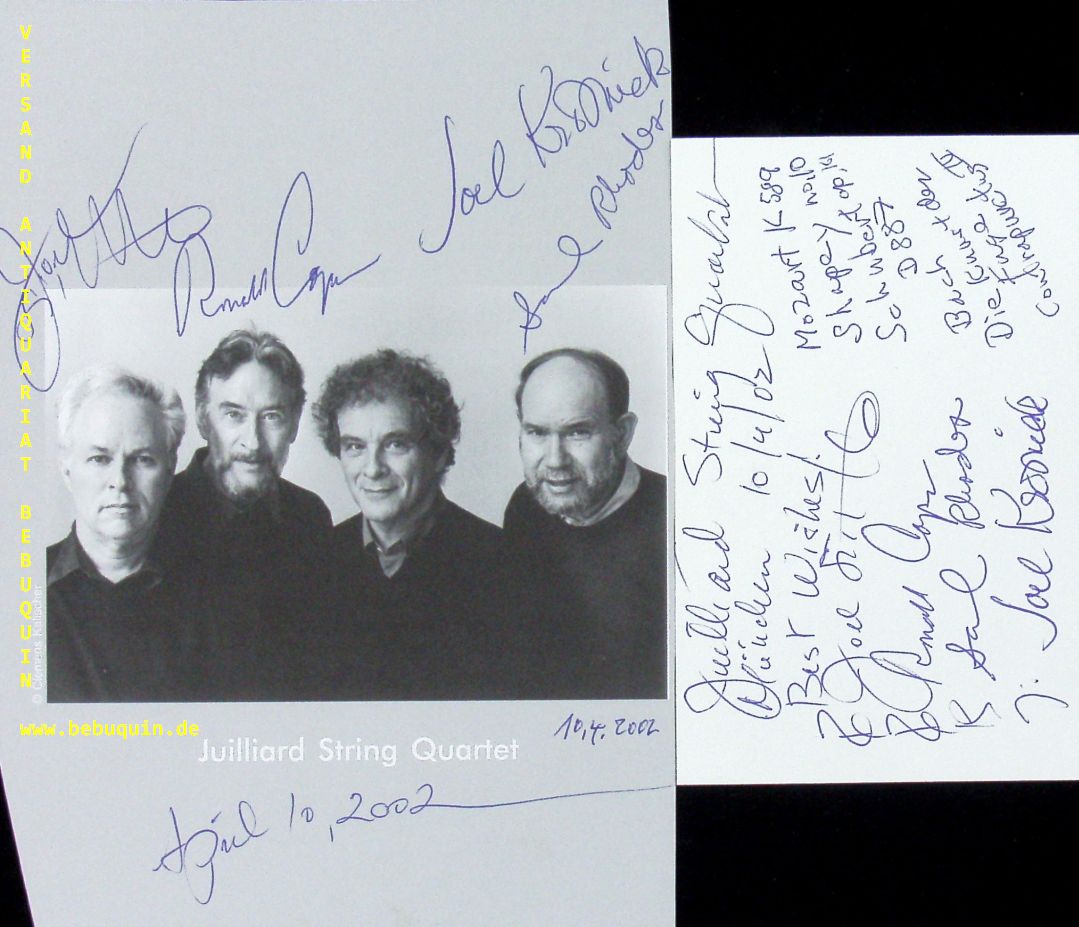 VERSAND ANTIQUARIAT BEBUQUIN
Joel Krosnick
Samuel Rhodes
Ronald Copes
© Clemens Kalischer
www.bebuquin.de
10.4.2002
Juilliard String Quartet
April 10, 2002
Juilliard String Quartet
München 10/4/02
Best Wishes!
Joel Smirnoff
Ronald Copes
Samuel Rhodes
Joel Krosnick
Mozart K 589
Shapey No 10
Schubert op. 161
D 887
Bach
Die Kunst der
Fuge
Contrapunctus